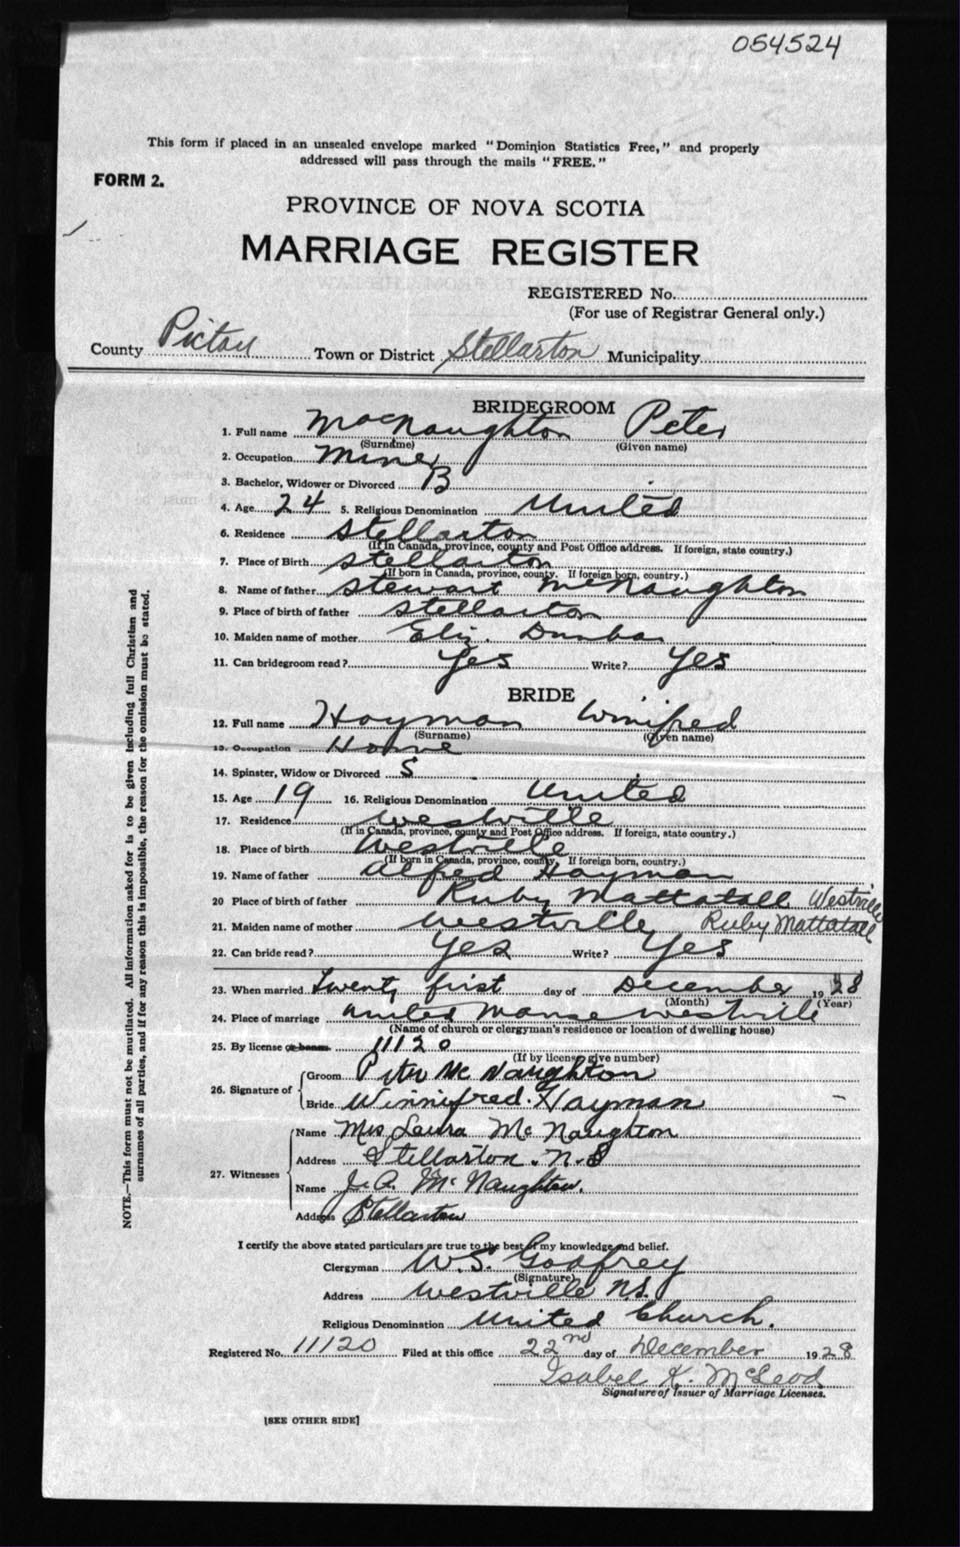 054524
This form if placed in an unsealed envelope marked "Dominion Statistics Free," and properly
addressed will pass through the mails "FREE."
FORM 2.
PROVINCE OF NOVA SCOTIA
MARRIAGE REGISTER
REGISTERED No.
(For use of Registrar General only.)
County Pictou Town or District Stellarton Municipality
BRIDEGROOM
1. Full name MacNaughton Peter
(Surname) (Given name)
2. Occupation Miner
3. Bachelor, Widower or Divorced B
4. Age 24 5. Religious Denomination United
6. Residence Stellarton
(If in Canada, province, county and Post Office address. If foreign, state country.)
7. Place of Birth Stellarton
(If born in Canada, province, county. If foreign born, country.)
8. Name of father Stewart McNaughton
9. Place of birth of father Stellarton
10. Maiden name of mother Eliz. Dunbar
11. Can bridegroom read? Yes Write? Yes
BRIDE
12. Full name Hayman Winifred
(Surname) (Given name)
13. Occupation Home
14. Spinster, Widow or Divorced S
15. Age 19 16. Religious Denomination United
17. Residence Westville
(If in Canada, province, county and Post Office address. If foreign, state country.)
18. Place of birth Westville
(If born in Canada, province, county, If foreign born, country.)
19. Name of father Alfred Hayman
20 Place of birth of father Ruby Mattatall Westville
21. Maiden name of mother Westville Ruby Mattatall
22. Can bride read? Yes Write? Yes
23. When married Twenty first day of December 1928
(Month) (Year)
24. Place of marriage United Manse Westville
(Name of church or clergyman's residence or location of dwelling house)
25. By license or banns 11120
(If by license give number)
26. Signature of
Groom Peter McNaughton
Bride Winnifred. Hayman
27. Witnesses
Name Mrs Laura McNaughton
Address Stellarton. N.S
Name J. A. McNaughton.
Address Stellarton
I certify the above stated particulars are true to the best of my knowledge and belief.
Clergyman W. S. Godfrey
(Signature)
Address Westville N.S.
Religious Denomination United Church.
Registered No. 11120 Filed at this office 22nd day of December 1928
Isabel K. McLeod
Signature of Issuer of Marriage Licenses.
[SEE OTHER SIDE]
NOTE.—This form must not be mutilated. All information asked for is to be given including full Christian and
surnames of all parties, and if for any reason this is impossible, the reason for the omission must be stated.